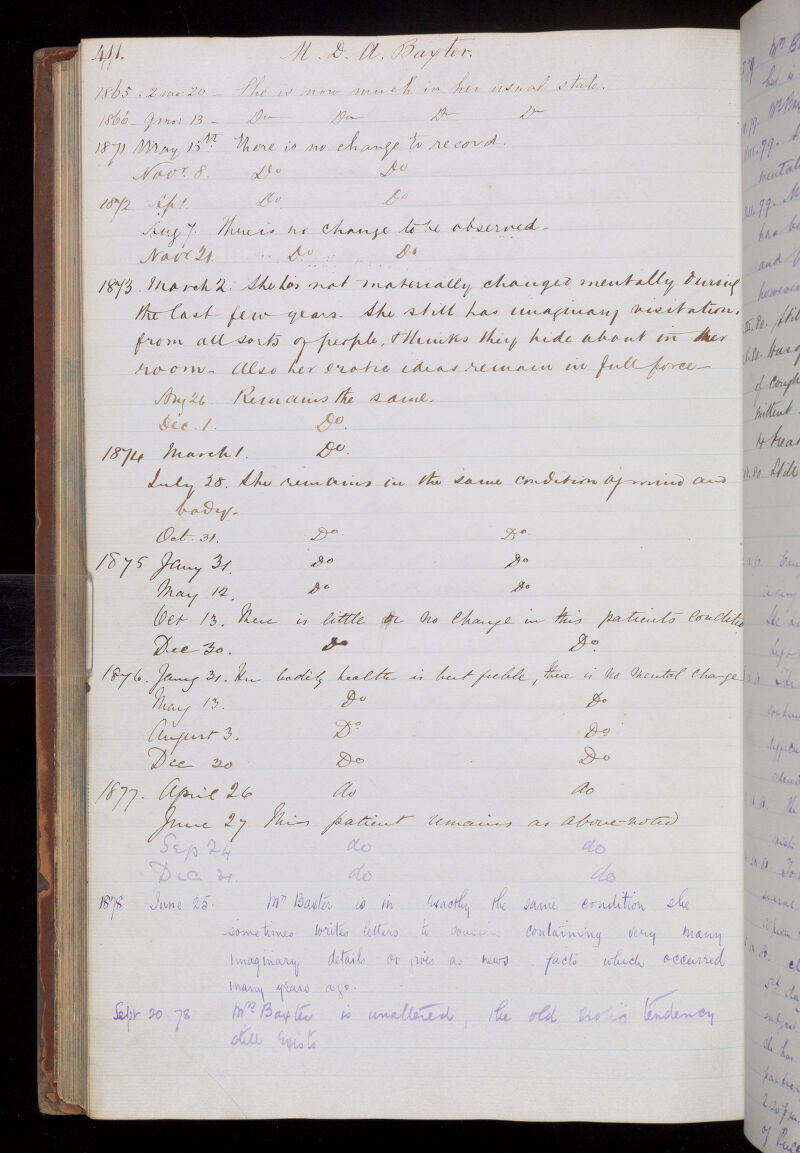 411.
M. D. A. Baxter.
1865. 2 mo. 20 – She is now much in her usual state.
1866 – 9 mo. 13 – Do Do Do Do
1871 May 15th. There is no change to record.
Novr. 8. Do Do
1872. Ap. 1. Do Do
Aug 7. There is no change to be observed –
Nov 21. Do Do
1873. March 2. She has not materially changed mentally during
the last few years. She still has imaginary visitations
from all sorts of people, & thinks they hide about in her
room – Also her erotic ideas remain in full force –
Aug 26 Remains the same.
Dec. 1. Do.
1874 March 1. Do.
July 28. She remains in the same condition of mind and
body.
Oct. 31. Do Do
1875 Jany 31. Do Do
May 12. Do Do
Oct 13. There is little or no change in this patients condition
Dec 30. Do Do.
1876. Jany 31. Her bodily health is but feeble, there is no mental change
May 13. Do Do
August 3. Do Do
Dec 20 Do Do
1877. April 26 do do
June 27 This patient remains as above-noted
Sep 24 do do
Dec 31. do do
1878 June 25. Mrs Baxter is in exactly the same condition she
sometimes writes letters to cousins containing very many
imaginary details or gives as news facts which occurred
many years ago.
Sept 20. 78 Mrs Baxter is unaltered, the old erotic tendency
still exists